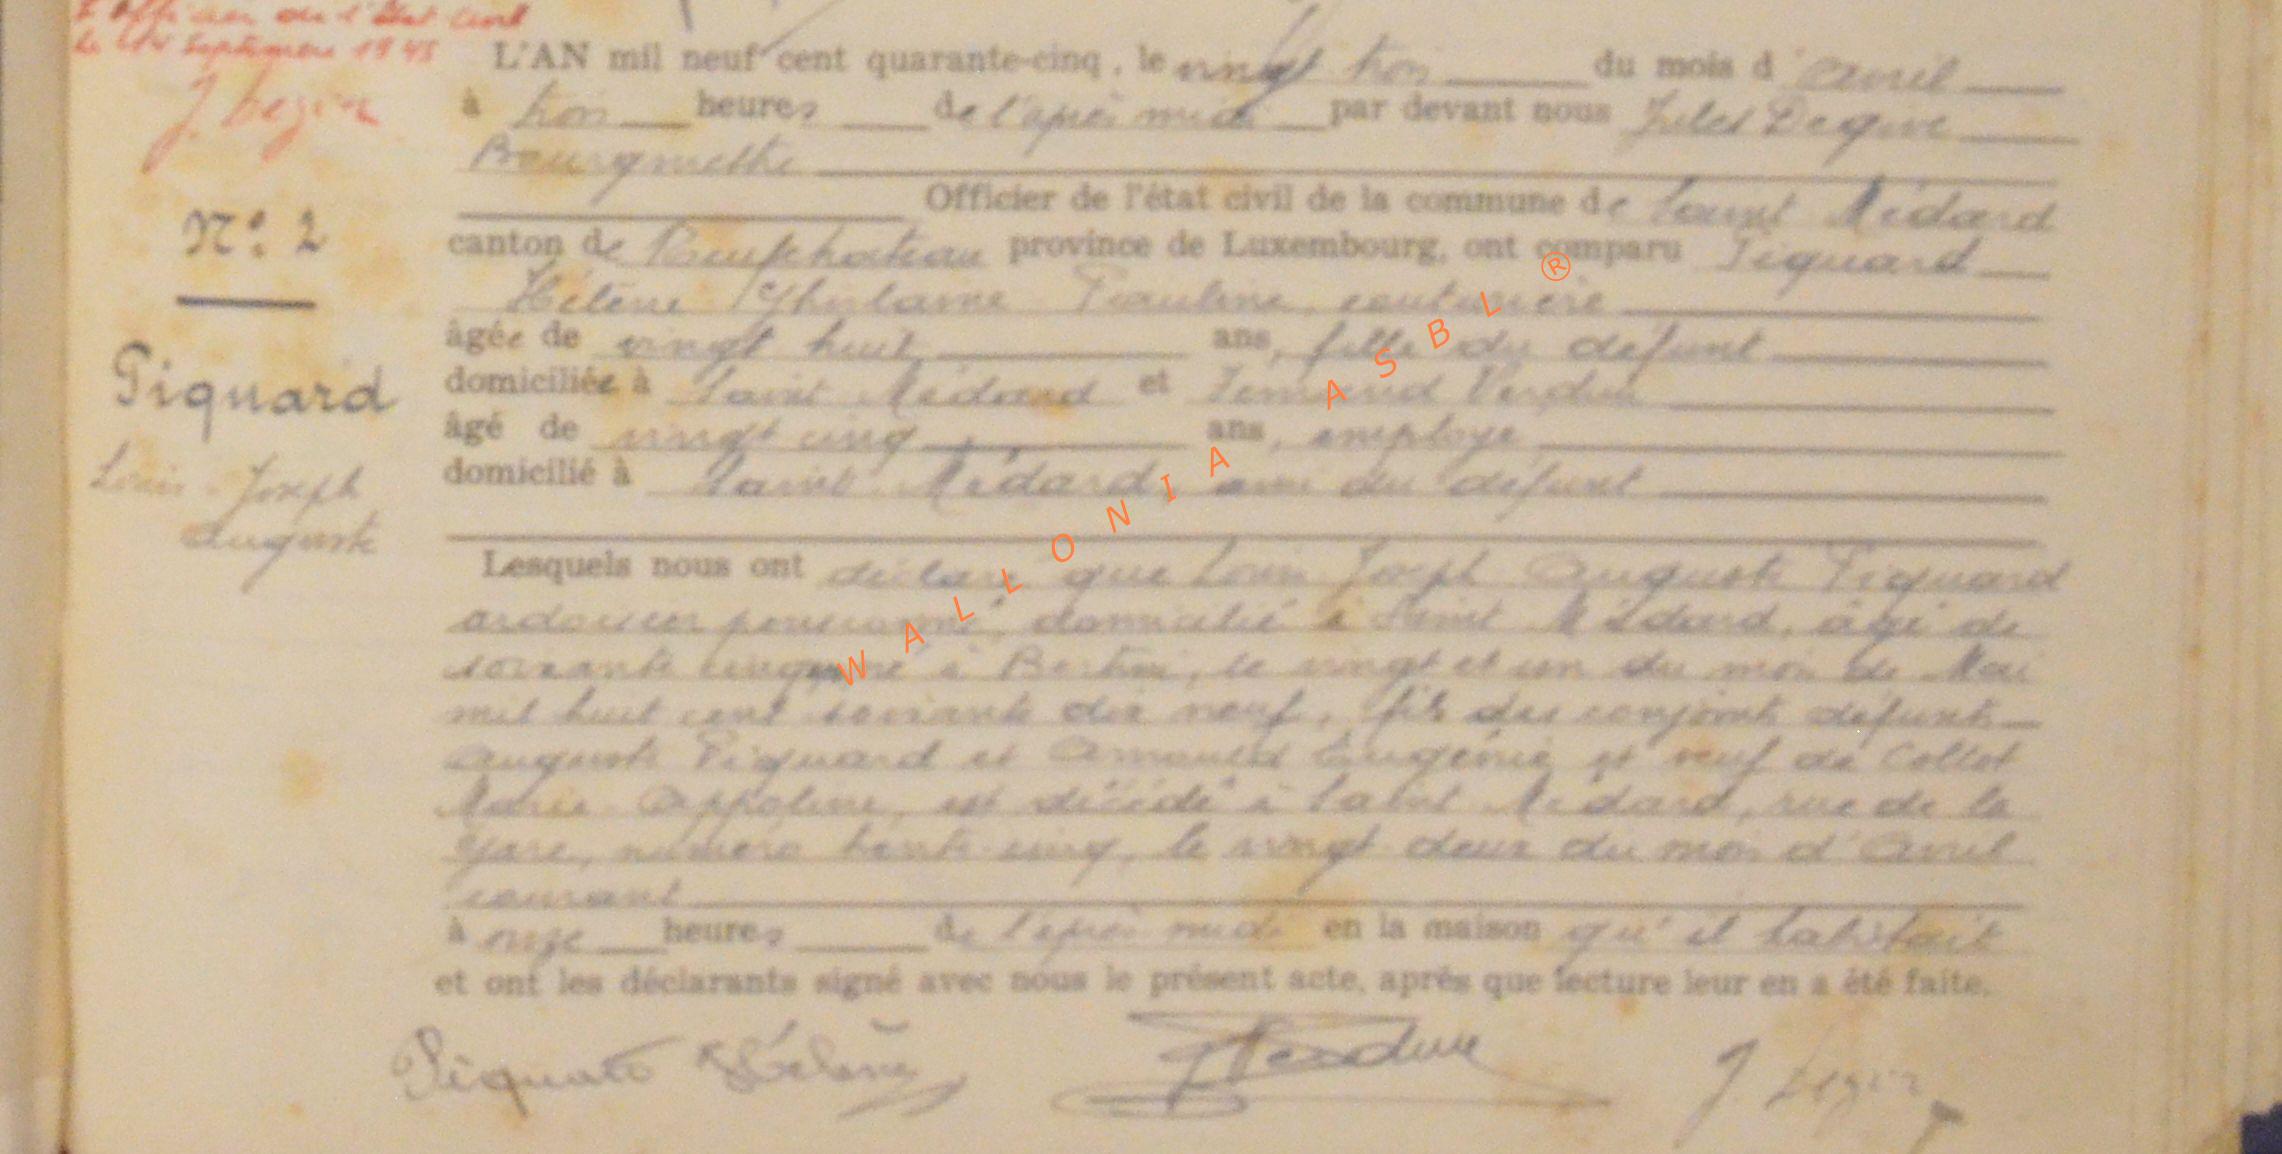 L'Officier de l'Etat Civil
le Septembre 1945
J. Degive
L'AN mil neuf cent quarante-cinq, le vingt trois du mois d'avril
à trois heures de l'après midi par devant nous Jules Degive
Bourgmestre
Officier de l'état civil de la commune de Saint Médard
canton de Neufchateau province de Luxembourg, ont comparu Piquard
Hélène Ghislaine Pauline, couturière
âgée de vingt huit ans, fille du défunt
domiciliée à Saint Médard et Fernand Verdun
âgé de vingt cinq ans, employé,
domicilié à Saint Médard, ami du défunt
Lesquels nous ont déclaré que Louis Joseph Auguste Piquard
ardoisier pensionné, domicilié à Saint Médard, âgé de
soixante cinq né à Bertrix, le vingt et un du mois de Mai
mil huit cent soixante dix neuf, fils des conjoints défunts
Auguste Piquard et Arnould Eugénie et veuf de Collot
Marie Appoline, est décédé à Saint Médard, rue de la
gare, numéro trente-cinq, le vingt deux du mois d'Avril
courant
à onze heures de l'après midi en la maison qu'il habitait
et ont les déclarants signé avec nous le présent acte, après que lecture leur en a été faite.
Piquard Hélène
J. Degive
N°. 2
Piquard
Louis-Joseph
Auguste
WALLONIA ASBL ®